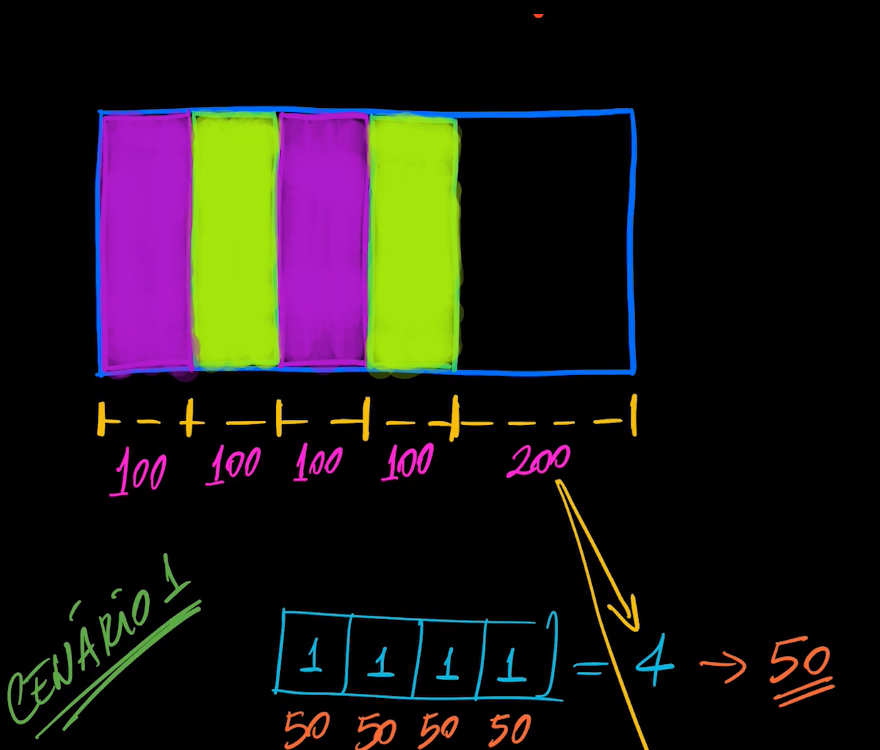 100 100 100 100 200
CENÁRIO 1
1 1 1 1 = 4 → 50
50 50 50 50